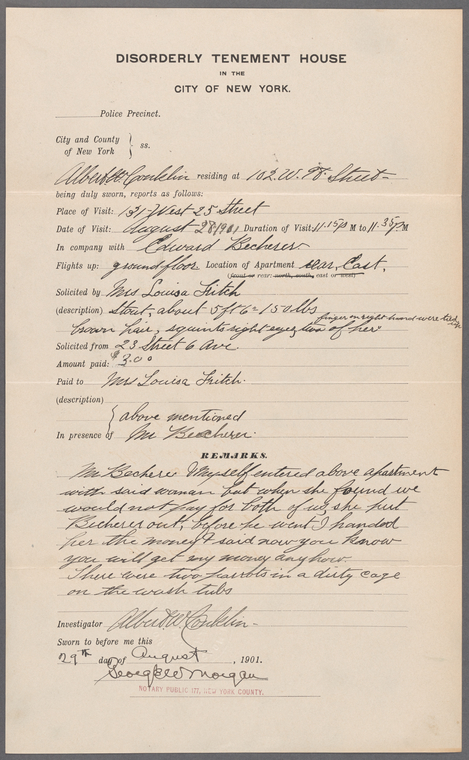 DISORDERLY TENEMENT HOUSE
IN THE
CITY OF NEW YORK.
Police Precinct.
City and County
of New York } ss.
Albert W Conklin residing at 102 W. Street
being duly sworn, reports as follows:
Place of Visit: 131 West 25 Street
Date of Visit: August 28 1901 Duration of Visit 11.15 P M to 11.35 P M
In company with Edward Becherer
Flights up: ground floor Location of Apartment rear, East.
(front or rear: north, south, east or west)
Solicited by Mrs Louisa Fitch
(description) stout, about 5 ft 6 = 150 lbs finger on right hand were tied up
brown hair, squints right eye, two of her
Solicited from 23 Street 6 Ave
Amount paid: $3.00
Paid to Mrs Louisa Fitch
(description) { above mentioned
In presence of Mr Becherer
REMARKS.
Mr Becherer Myself entered above apartment
with said woman but when she found we
would not pay for both of us, she put
Becherer out, before he went I handed
her the money & said now you know
you will get my money anyhow.
There were two parrots in a dirty cage
on the wash tubs
Investigator Albert W Conklin
Sworn to before me this
29th day of August, 1901.
George W Morgan
NOTARY PUBLIC 177, NEW YORK COUNTY.